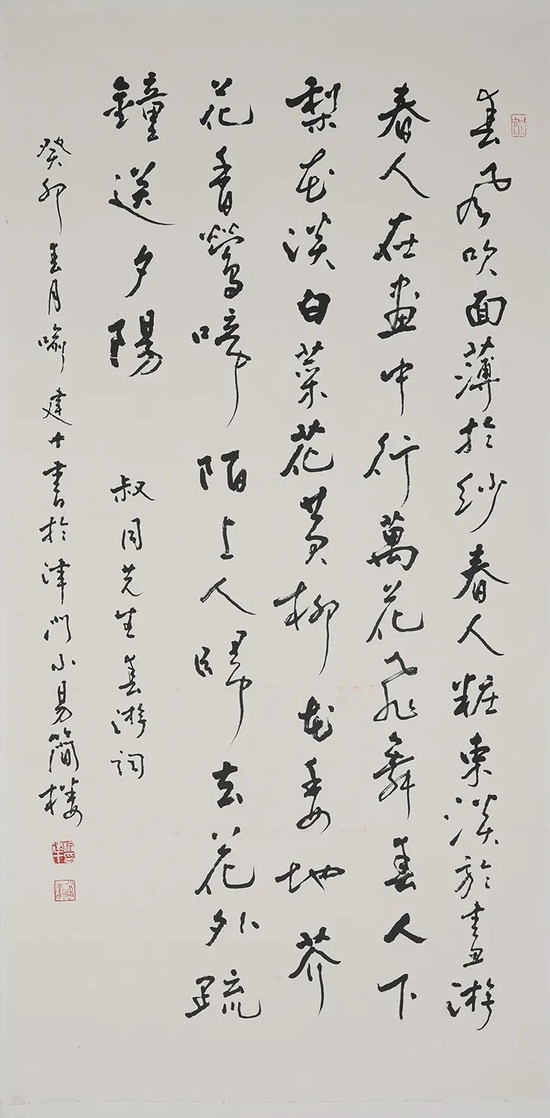 春風吹面薄於紗春人粧束淡於畫游
春人在畫中行萬花飛舞春人下
梨花淡白菜花黄柳花委地芥
花香鶯啼陌上人歸去花外疏
鐘送夕陽
叔同先生春游詞
癸卯春月喻建十書於津門小易簡樓